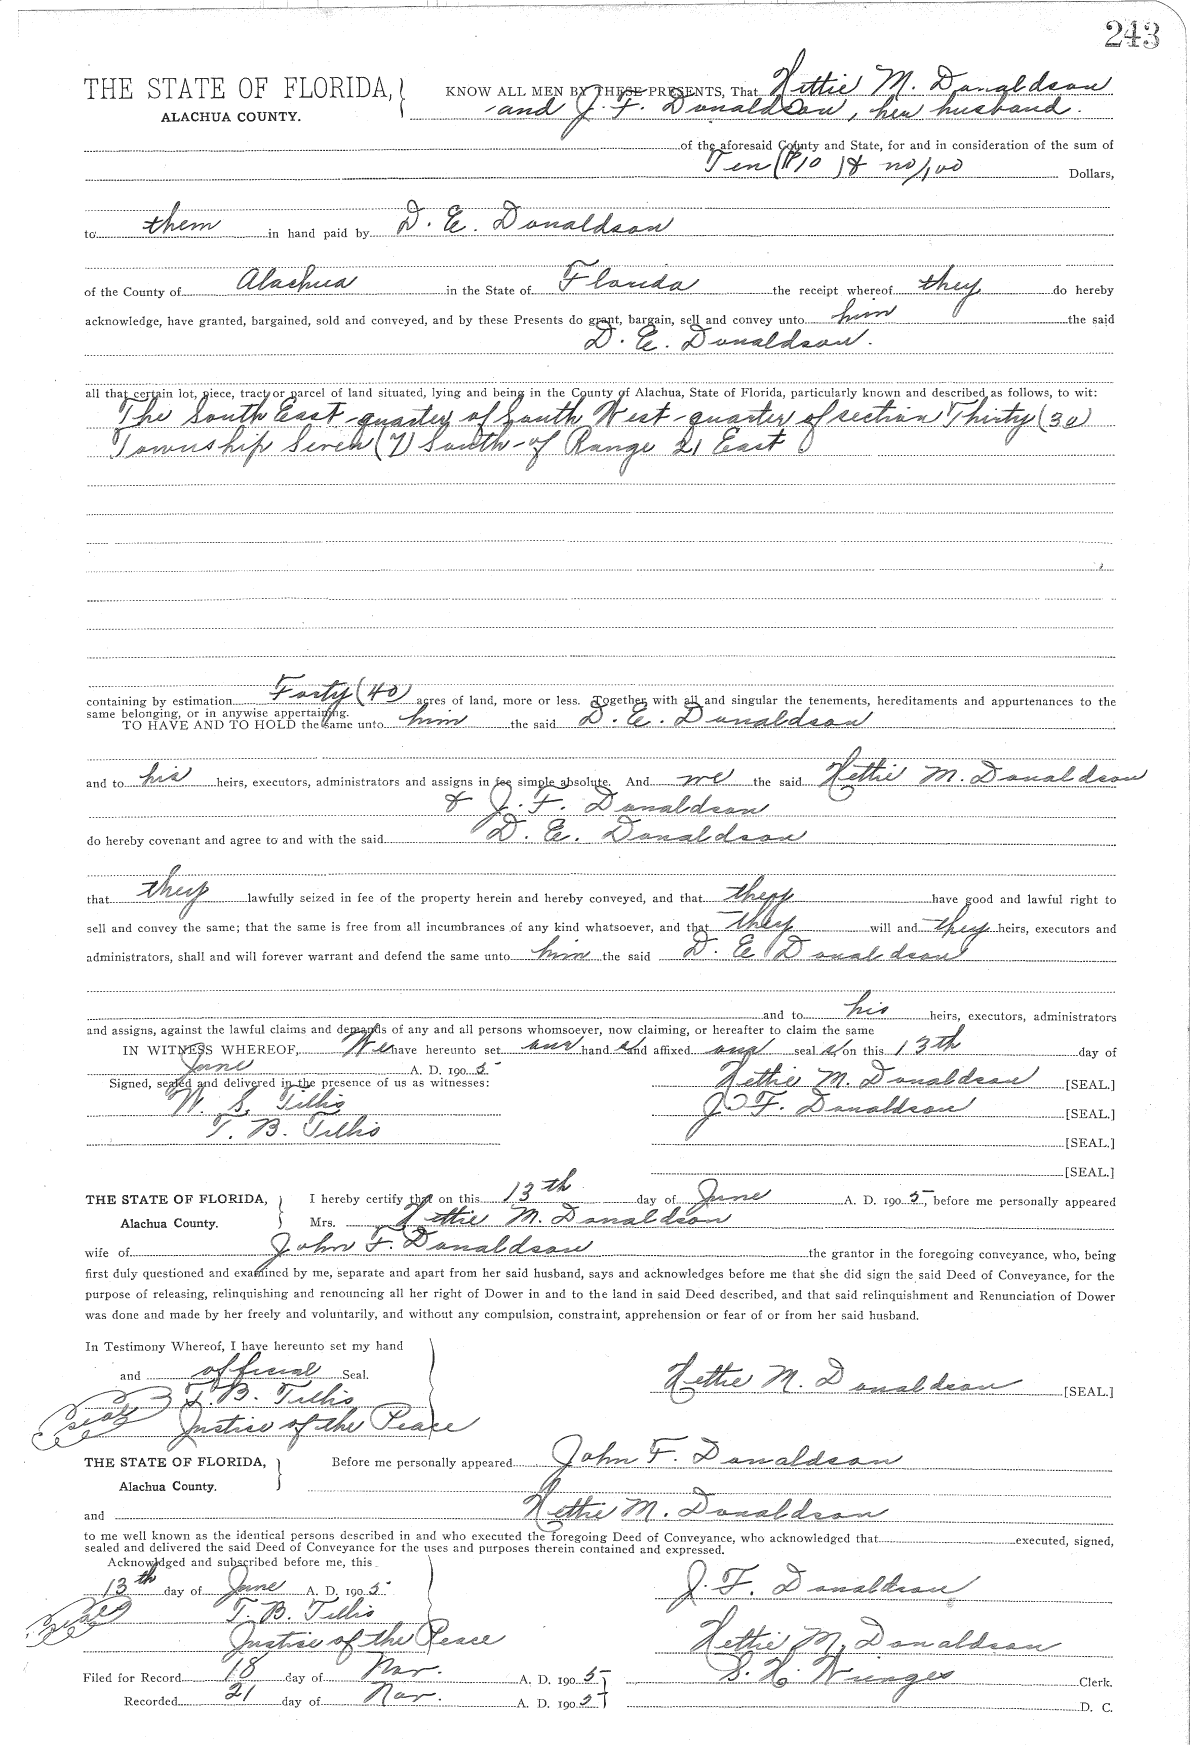 243
THE STATE OF FLORIDA, KNOW ALL MEN BY THESE PRESENTS, That Hettie M. Donaldson
ALACHUA COUNTY. and J. F. Donaldson, her husband.
of the aforesaid County and State, for and in consideration of the sum of
Ten ($10) & no/100 Dollars,
to them in hand paid by D. E. Donaldson
of the County of Alachua in the State of Florida the receipt whereof they do hereby
acknowledge, have granted, bargained, sold and conveyed, and by these Presents do grant, bargain, sell and convey unto him the said
D. E. Donaldson.
all that certain lot, piece, tract or parcel of land situated, lying and being in the County of Alachua, State of Florida, particularly known and described as follows, to wit:
The South East-quarter of South West-quarter of section Thirty (30)
Township Seven (7) South-of Range 21 East
containing by estimation Forty (40) acres of land, more or less. Together with all and singular the tenements, hereditaments and appurtenances to the
same belonging, or in anywise appertaining.
TO HAVE AND TO HOLD the same unto him the said D. E. Donaldson
and to his heirs, executors, administrators and assigns in fee simple absolute. And we the said Hettie M. Donaldson
& J. F. Donaldson
do hereby covenant and agree to and with the said D. E. Donaldson
that they lawfully seized in fee of the property herein and hereby conveyed, and that they have good and lawful right to
sell and convey the same; that the same is free from all incumbrances of any kind whatsoever, and that they will and they heirs, executors and
administrators, shall and will forever warrant and defend the same unto him the said D. E. Donaldson
and to his heirs, executors, administrators
and assigns, against the lawful claims and demands of any and all persons whomsoever, now claiming, or hereafter to claim the same
IN WITNESS WHEREOF, We have hereunto set our hand s and affixed our seal s on this 13th day of
June A. D. 190 5
Signed, sealed and delivered in the presence of us as witnesses: Hettie M. Donaldson [SEAL.]
W. S. Tillis J. F. Donaldson [SEAL.]
T. B. Tillis [SEAL.]
[SEAL.]
THE STATE OF FLORIDA, I hereby certify that on this 13th day of June A. D. 190 5, before me personally appeared
Alachua County. Mrs. Hettie M. Donaldson
wife of John F. Donaldson the grantor in the foregoing conveyance, who, being
first duly questioned and examined by me, separate and apart from her said husband, says and acknowledges before me that she did sign the said Deed of Conveyance, for the
purpose of releasing, relinquishing and renouncing all her right of Dower in and to the land in said Deed described, and that said relinquishment and Renunciation of Dower
was done and made by her freely and voluntarily, and without any compulsion, constraint, apprehension or fear of or from her said husband.
In Testimony Whereof, I have hereunto set my hand
and official Seal. Hettie M. Donaldson [SEAL.]
T. B. Tillis
seal Justice of the Peace
THE STATE OF FLORIDA, Before me personally appeared John F. Donaldson
Alachua County.
and Hettie M. Donaldson
to me well known as the identical persons described in and who executed the foregoing Deed of Conveyance, who acknowledged that executed, signed,
sealed and delivered the said Deed of Conveyance for the uses and purposes therein contained and expressed.
Acknowledged and subscribed before me, this
13th day of June A. D. 190 5 J. F. Donaldson
seal T. B. Tillis
Justice of the Peace Hettie M. Donaldson
Filed for Record 18 day of Nov. A. D. 190 5 S. H. Wienges Clerk.
Recorded 21 day of Nov. A. D. 190 5 D. C.